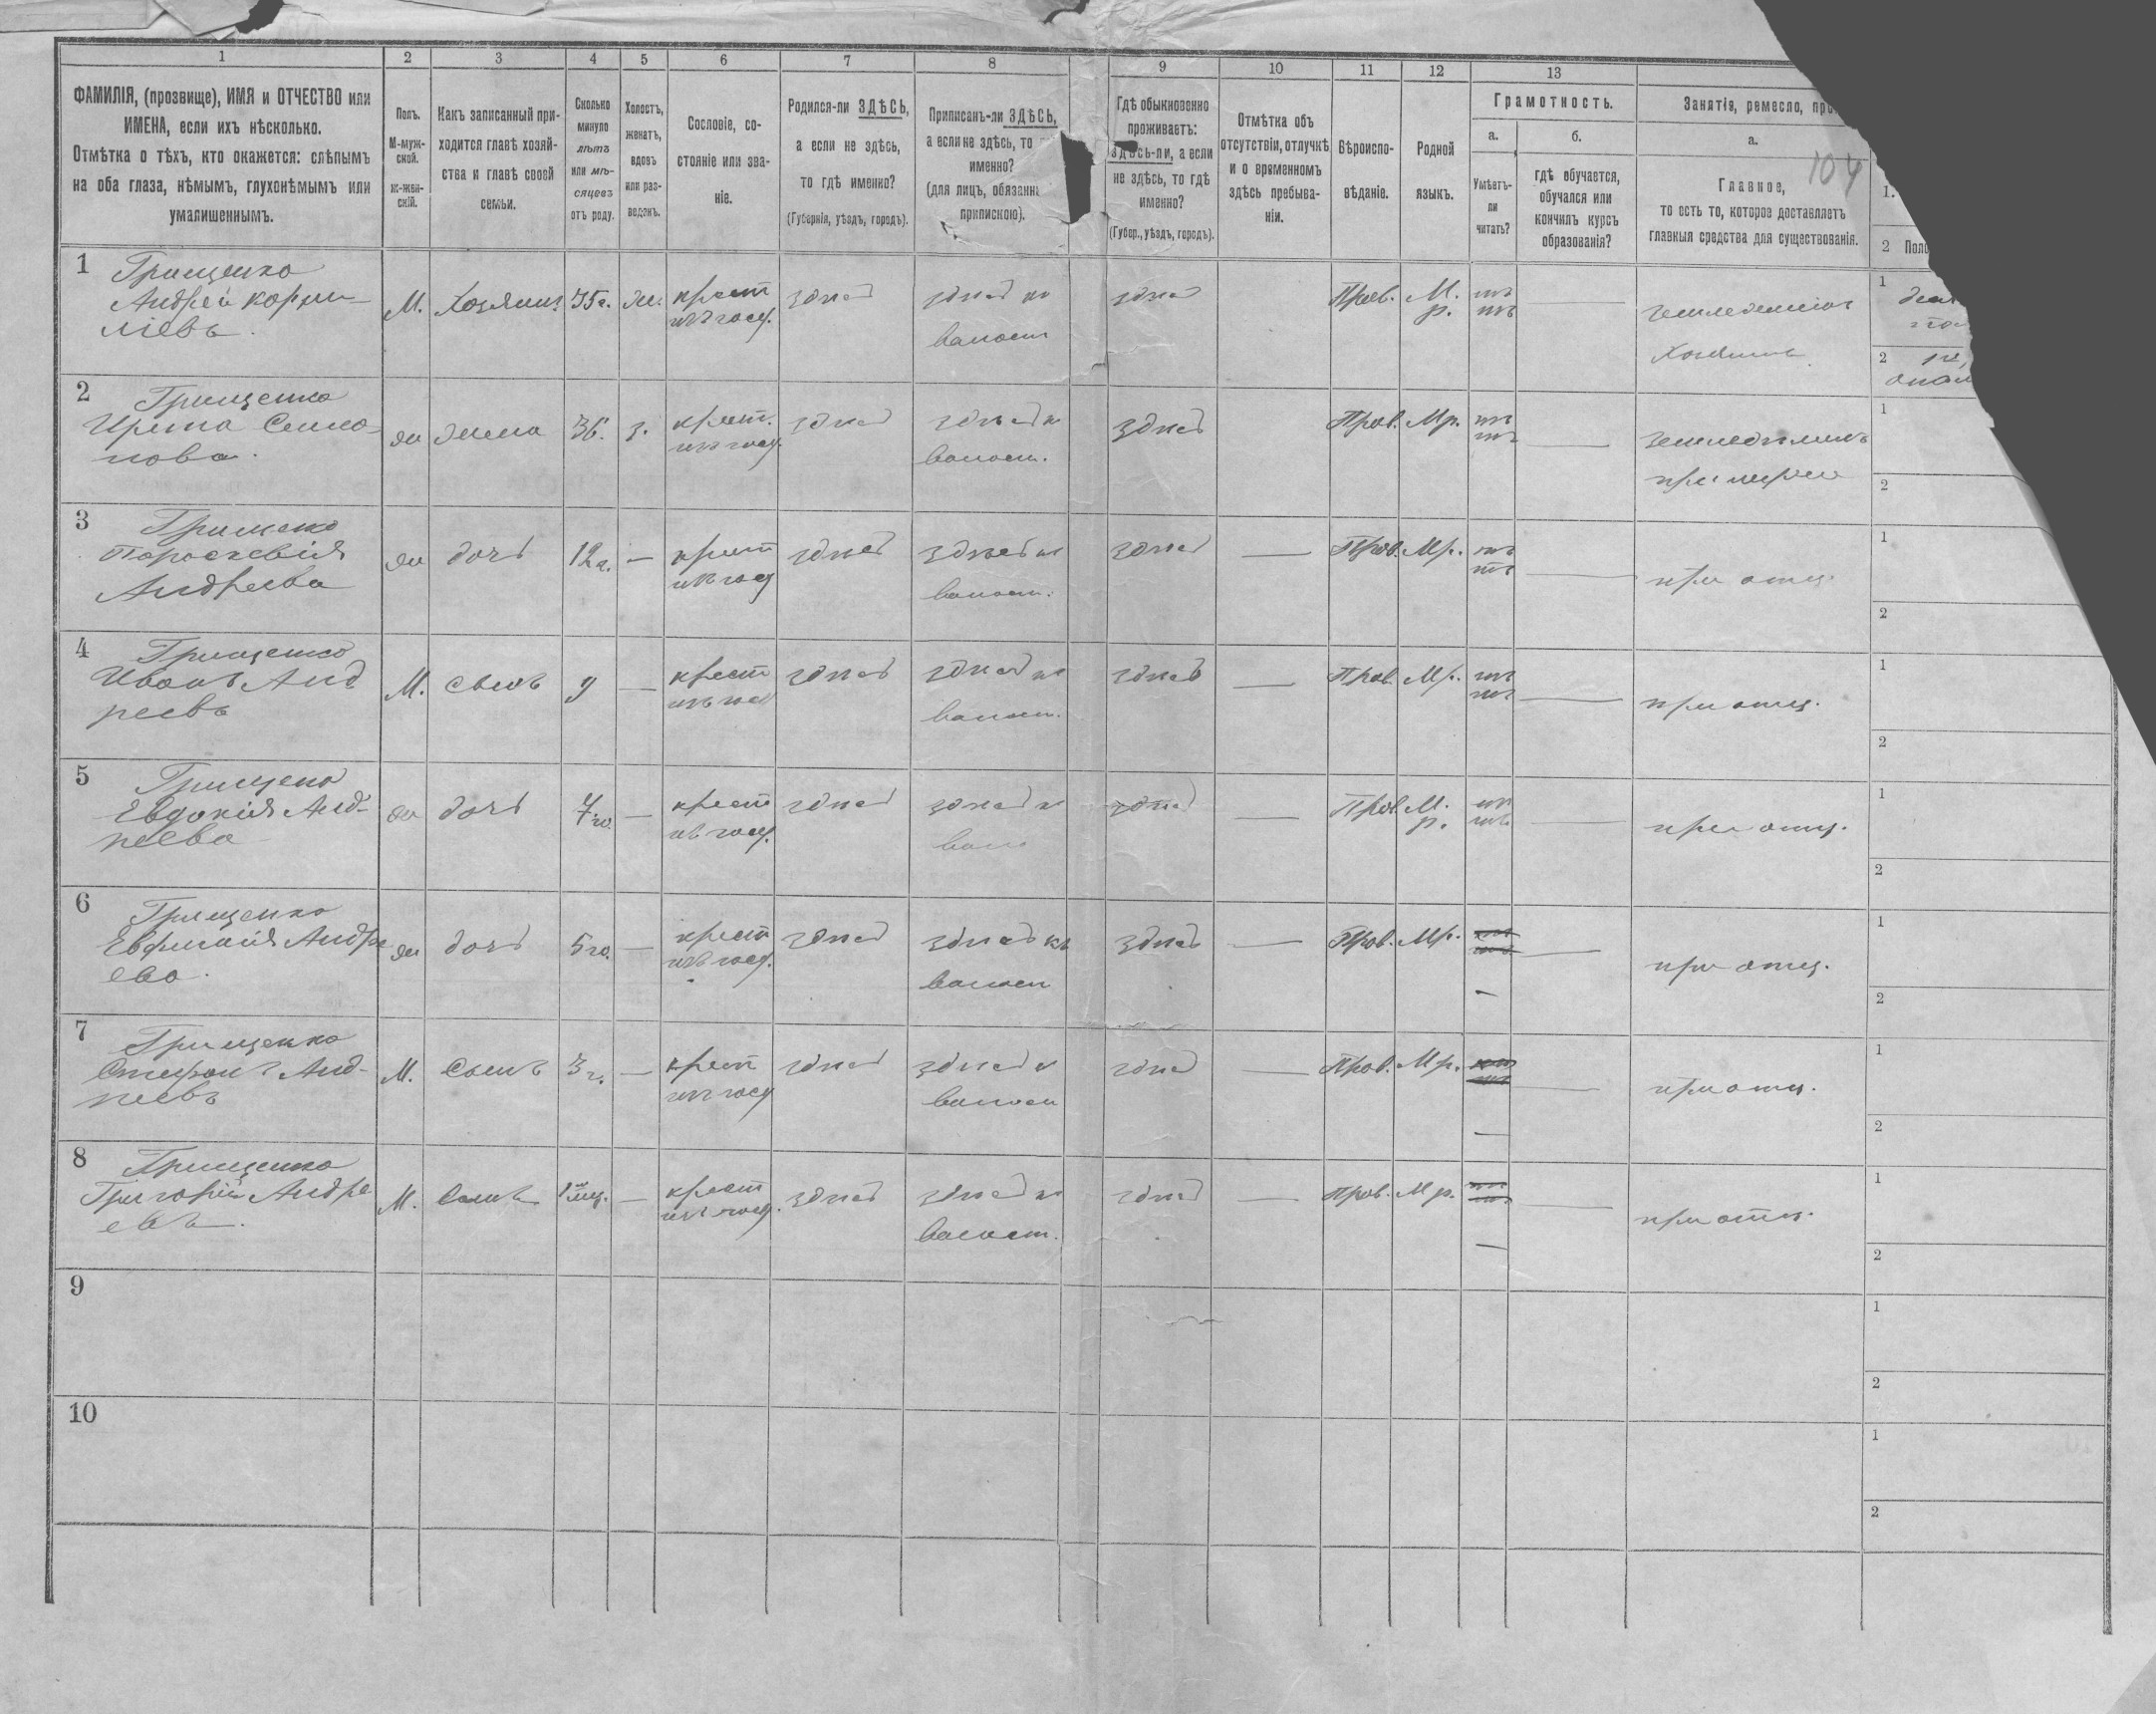 1 2 3 4 5 6 7 8 9 10 11 12 13
ФАМИЛІЯ, (прозвище), ИМЯ и ОТЧЕСТВО или
ИМЕНА, если ихъ нѣсколько.
Отмѣтка о тѣхъ, кто окажется: слѣпымъ
на оба глаза, нѣмымъ, глухонѣмымъ или
умалишеннымъ.
Полъ.
М-муж-
ской.
ж-жен-
скій.
Какъ записанный при-
ходится главѣ хозяй-
ства и главѣ своей
семьи.
Сколько
минуло
лѣтъ
или мѣ-
сяцевъ
отъ роду.
Холостъ,
женатъ,
вдовъ
или раз-
веденъ.
Сословіе, со-
стояніе или зва-
ніе.
Родился-ли ЗДѢСЬ,
а если не здѣсь,
то гдѣ именно?
(Губернія, уѣздъ, городъ).
Приписанъ-ли ЗДѢСЬ,
а если не здѣсь, то
именно?
(для лицъ, обязанн
припискою).
Гдѣ обыкновенно
проживаетъ:
ЗДѢСЬ-ли, а если
не здѣсь, то гдѣ
именно?
(Губер., уѣздъ, городъ).
Отмѣтка объ
отсутствіи, отлучкѣ
и о временномъ
здѣсь пребыва-
ніи.
Вѣроиспо-
вѣданіе.
Родной
языкъ.
Грамотность.
а.
Умѣетъ-
ли
читать?
б.
гдѣ обучается,
обучался или
кончилъ курсъ
образованія?
Занятія, ремесло, про
а.
104
Главное,
то есть то, которое доставляетъ
главныя средства для существованія.
1.
2 Поло
1
Грищенко
Андрей Корни
ліевъ.
М.
Хозяинъ
крест
здѣсь
волост
Прав.
М.
р.
Хозяинъ
1
2
2
Грищенко
Ирина Семио
нова.
жена
36.
з.
крест.
здѣсь
волост.
здѣсь
Прав.
Мр.
1
2
3
Грищенко
Параскевія
Андреева
дочь
12 г.
—
крест
здѣсь
волост.
здѣсь
—
Прав.
Мр.
—
при отц.
1
2
4
Грищенко
Иванъ Анд
реевъ
М.
сынъ
9
—
крест
здѣсь
волост.
здѣсь
—
Прав.
Мр.
—
при отц.
1
2
5
Грищенко
Евдокія Анд-
реева
дочь
7 го.
—
крест
здѣсь
здѣсь
—
Прав.
М.
р.
—
при отц.
1
2
6
Грищенко
Евфимія Андре
ева.
дочь
5 го.
—
крест
здѣсь
здѣсь къ
волост
здѣсь
—
Прав.
Мр.
—
—
при отц.
1
2
7
Грищенко
Анд-
реевъ
М.
Сынъ
3 г.
—
крест
здѣсь
волост
здѣсь
—
Прав.
Мр.
—
—
при отц.
1
2
8
Грищенко
Григорій Андре
евъ.
М.
Сынъ
—
крест
здѣсь
волост.
здѣсь
—
Прав.
Мр.
—
—
при отц.
1
2
9
1
2
10
1
2